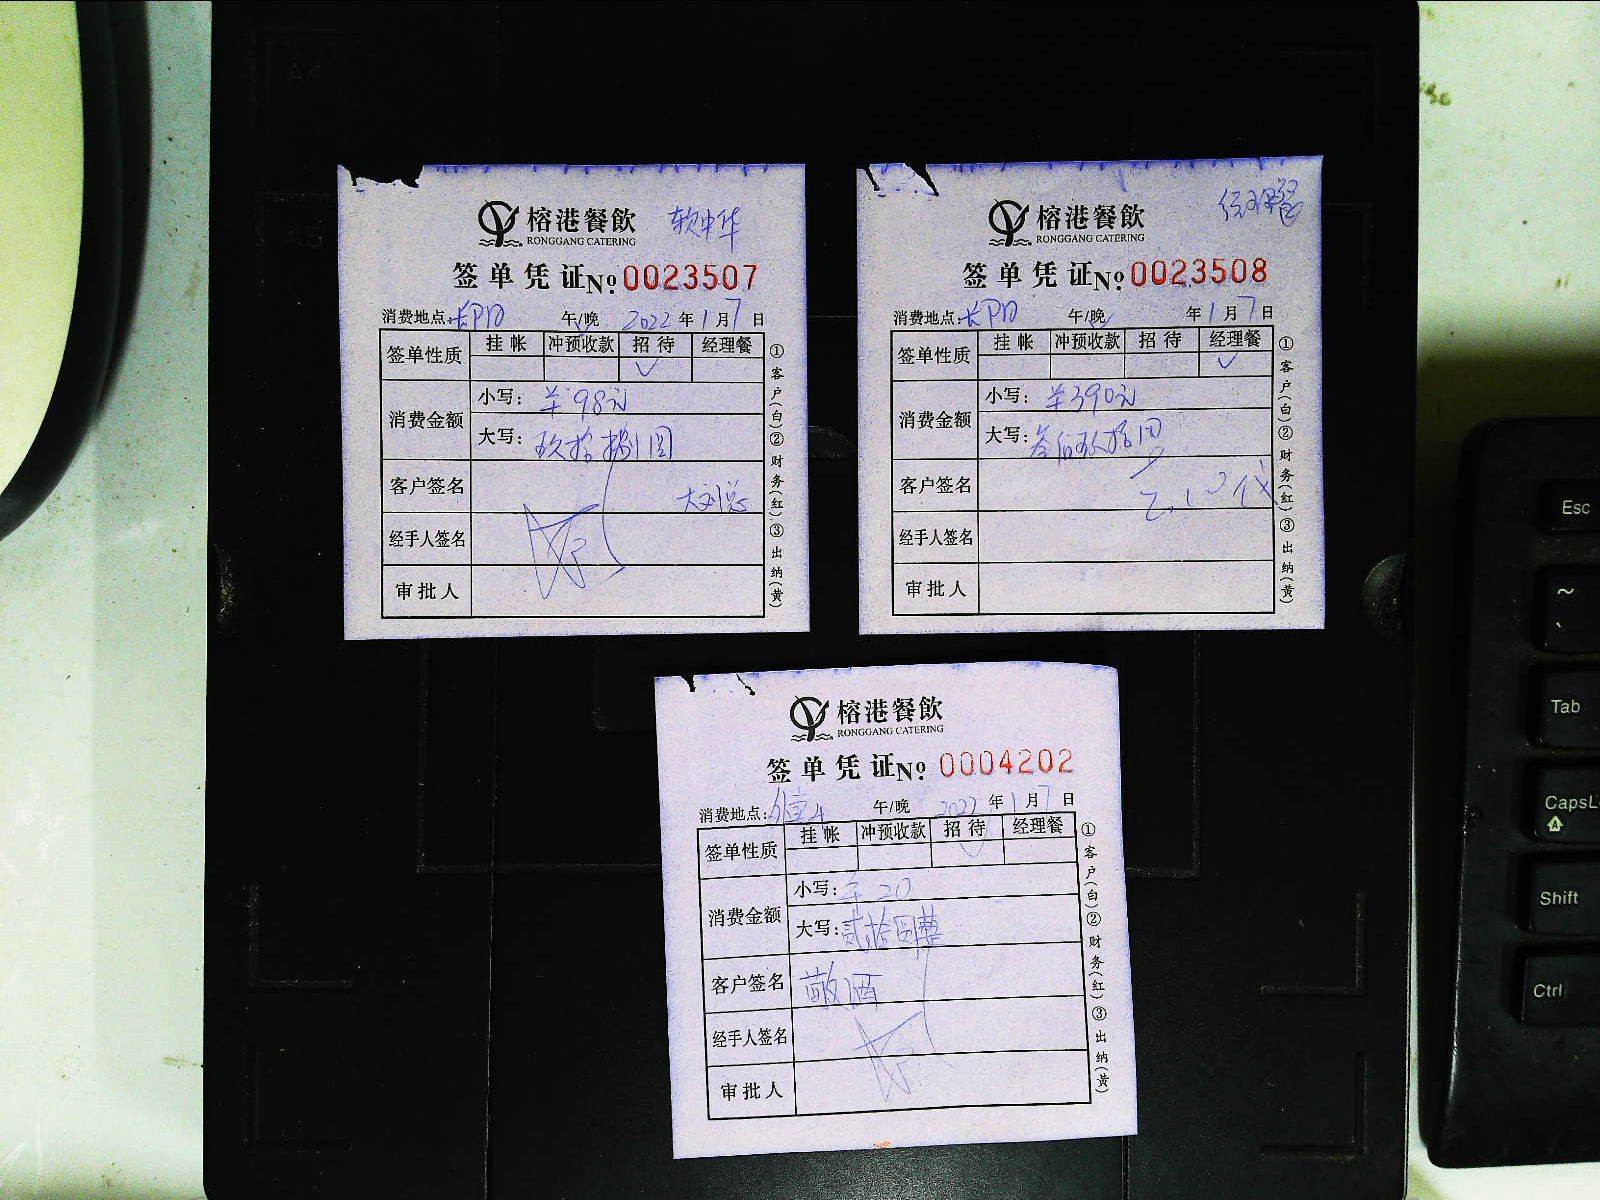 榕港餐飲 软中华
RONGGANG CATERING
签单凭证 No 0023507
消费地点: 午/晚 2022年1月7日
签单性质 挂帐 冲预收款 招待 经理餐
✓
消费金额 小写: 羊98元
大写: 玖拾捌圆
客户签名 大刘总
经手人签名
审批人
①客户(白)②财务(红)③出纳(黄)
榕港餐飲
RONGGANG CATERING
签单凭证 No 0023508
消费地点: 午/晚 年1月7日
签单性质 挂帐 冲预收款 招待 经理餐
✓
消费金额 小写: 羊390元
大写: 叁佰玖拾圆
客户签名
经手人签名
审批人
①客户(白)②财务(红)③出纳(黄)
榕港餐飲
RONGGANG CATERING
签单凭证 No 0004202
消费地点: 午/晚 2022年1月7日
签单性质 挂帐 冲预收款 招待 经理餐
✓
消费金额 小写: 羊20
大写: 贰拾圆整
客户签名 敬酒
经手人签名
审批人
①客户(白)②财务(红)③出纳(黄)
A4
A5
Esc
~
Tab
CapsL
Shift
Ctrl